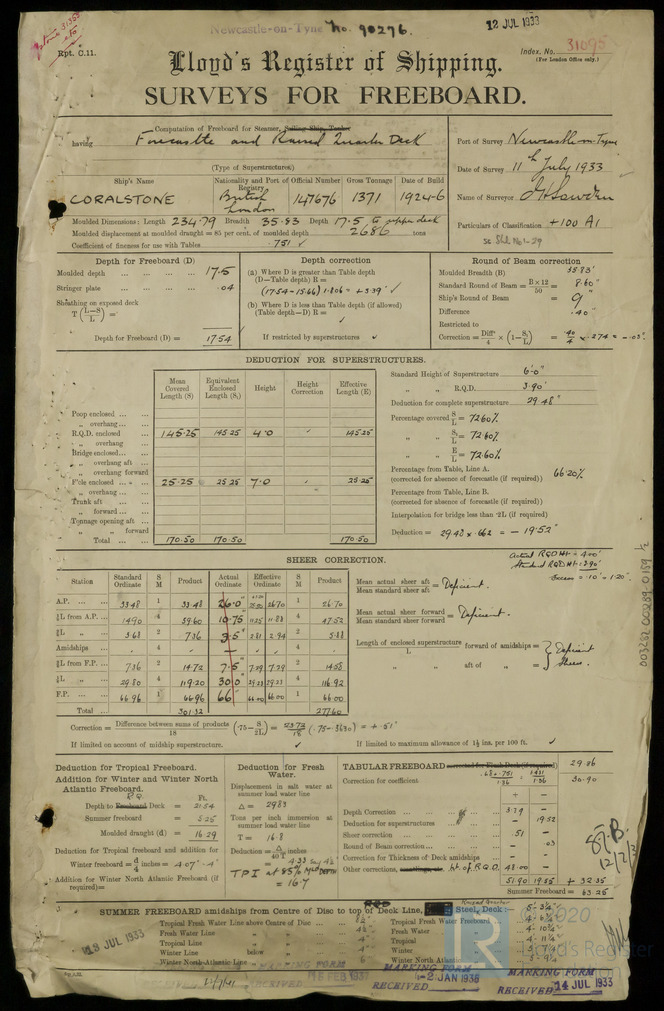 Newcastle-on-Tyne No. 90276.
12 JUL 1933
Rpt. C.11.
Index. No. 31095
(For London Office only.)
Lloyd's Register of Shipping.
SURVEYS FOR FREEBOARD.
Computation of Freeboard for Steamer, Sailing Ship, Tanker
having Forecastle and Raised Quarter Deck
(Type of Superstructures.)
Port of Survey Newcastle on Tyne
Date of Survey 11th July 1933
Name of Surveyor
Particulars of Classification +100 A1
Ship's Name
Nationality and Port of Registry
Official Number
Gross Tonnage
Date of Build
CORALSTONE
British London
147676
1371
1924-6
Moulded Dimensions: Length 234.79 Breadth 35.83 Depth 17.5 to upper deck
Moulded displacement at moulded draught = 85 per cent. of moulded depth 2686 tons
Coefficient of fineness for use with Tables .751
Depth for Freeboard (D)
Moulded depth 17.5
Stringer plate .04
Sheathing on exposed deck
T (L-S/L) =
Depth for Freeboard (D) = 17.54
Depth correction
(a) Where D is greater than Table depth
(D-Table depth) R =
(17.54-15.66) 1.806 = +3.39"
(b) Where D is less than Table depth (if allowed)
(Table depth-D) R =
If restricted by superstructures
Round of Beam correction
Moulded Breadth (B) 35.83'
Standard Round of Beam = B×12/50 = 8.60"
Ship's Round of Beam = 9"
Difference .40"
Restricted to
Correction = Diff/4 × (1-S1/L) = .40/4 × .274 = -.03"
DEDUCTION FOR SUPERSTRUCTURES.
Mean Covered Length (S)
Equivalent Enclosed Length (S1)
Height
Height Correction
Effective Length (E)
Poop enclosed
" overhang
R.Q.D. enclosed 145.25 145.25 4.0 145.25
" overhang
Bridge enclosed
" overhang aft
" overhang forward
F'cle enclosed 25.25 25.25 7.0 25.25
" overhang
Trunk aft
" forward
Tonnage opening aft
" " forward
Total 170.50 170.50 170.50
Standard Height of Superstructure 6'.0"
" " R.Q.D. 3.90'
Deduction for complete superstructure 29.48"
Percentage covered S/L = 72.60%
" " S1/L = 72.60%
" " E/L = 72.60%
Percentage from Table, Line A. 66.20%
(corrected for absence of forecastle (if required))
Percentage from Table, Line B.
(corrected for absence of forecastle (if required))
Interpolation for bridge less than .2L (if required)
Deduction = 29.48 × .662 = -19.52"
Actual RQD Ht = 4.00'
Standard RQD Ht = 3.90'
Excess = .10' = 1.20"
SHEER CORRECTION.
Station
Standard Ordinate
S M
Product
Actual Ordinate
Effective Ordinate
S M
Product
A.P. 33.48 1 33.48 26.0 26.70 1 26.70
1/6L from A.P. 14.90 4 59.60 10.75 11.25 11.88 4 47.52
1/3L " 3.68 2 7.36 3.5 2.81 2.94 2 5.88
Amidships 4 4
1/3L from F.P. 7.36 2 14.72 7.5 7.29 7.29 2 14.58
1/6L " 29.80 4 119.20 30.0 29.23 29.23 4 116.92
F.P. 66.96 1 66.96 66" 66.00 66.00 1 66.00
Total 301.32 277.60
Mean actual sheer aft / Mean standard sheer aft = Deficient.
Mean actual sheer forward / Mean standard sheer forward = Deficient.
Length of enclosed superstructure / L forward of amidships =
" " aft of " =
Deficient Sheer.
Correction = Difference between sums of products/18 (.75 - S/2L) = 23.72/18 (.75-.3630) = +.51"
If limited on account of midship superstructure.
If limited to maximum allowance of 1½ ins. per 100 ft.
Deduction for Tropical Freeboard.
Addition for Winter and Winter North Atlantic Freeboard.
Ft.
Depth to Freeboard Deck = 21.54
R.Q.
Summer freeboard = 5.25
Moulded draught (d) = 16.29
Deduction for Tropical freeboard and addition for
Winter freeboard = d/4 inches = 4.07" - 4"
Addition for Winter North Atlantic Freeboard (if required) =
Deduction for Fresh Water.
Displacement in salt water at summer load water line
Δ = 2983
Tons per inch immersion at summer load water line
T = 16.8
Deduction = Δ/40T inches
= 4.33 say 4½
TPI at 85% Mld DEPTH = 16.7
TABULAR FREEBOARD corrected for Flush Deck (if required) 29.86
Correction for coefficient .68+.751/1.36 = 1.431/1.36 30.90
+ -
Depth Correction 3.39
Deduction for superstructures 19.52
Sheer correction .51
Round of Beam correction .03
Correction for Thickness of Deck amidships
Other corrections, Ht of R.Q.D. 48.00
51.90 19.55 + 32.35
Summer Freeboard = 63.25
SUMMER FREEBOARD amidships from Centre of Disc to top of Deck Line, Steel, Deck :
Raised Quarter
Tropical Fresh Water Line above Centre of Disc
Fresh Water Line " "
Tropical Line " "
Winter Line below " "
Winter North Atlantic Line " "
Tropical Fresh Water Freeboard
Fresh Water "
Tropical "
Winter "
Winter North Atlantic "
13 JUL 1933
18 FEB 1937
MARKING FORM RECEIVED 2 JAN 1936
MARKING FORM RECEIVED 14 JUL 1933
003282-003289-0159 1/2
2020
Lloyd's Register